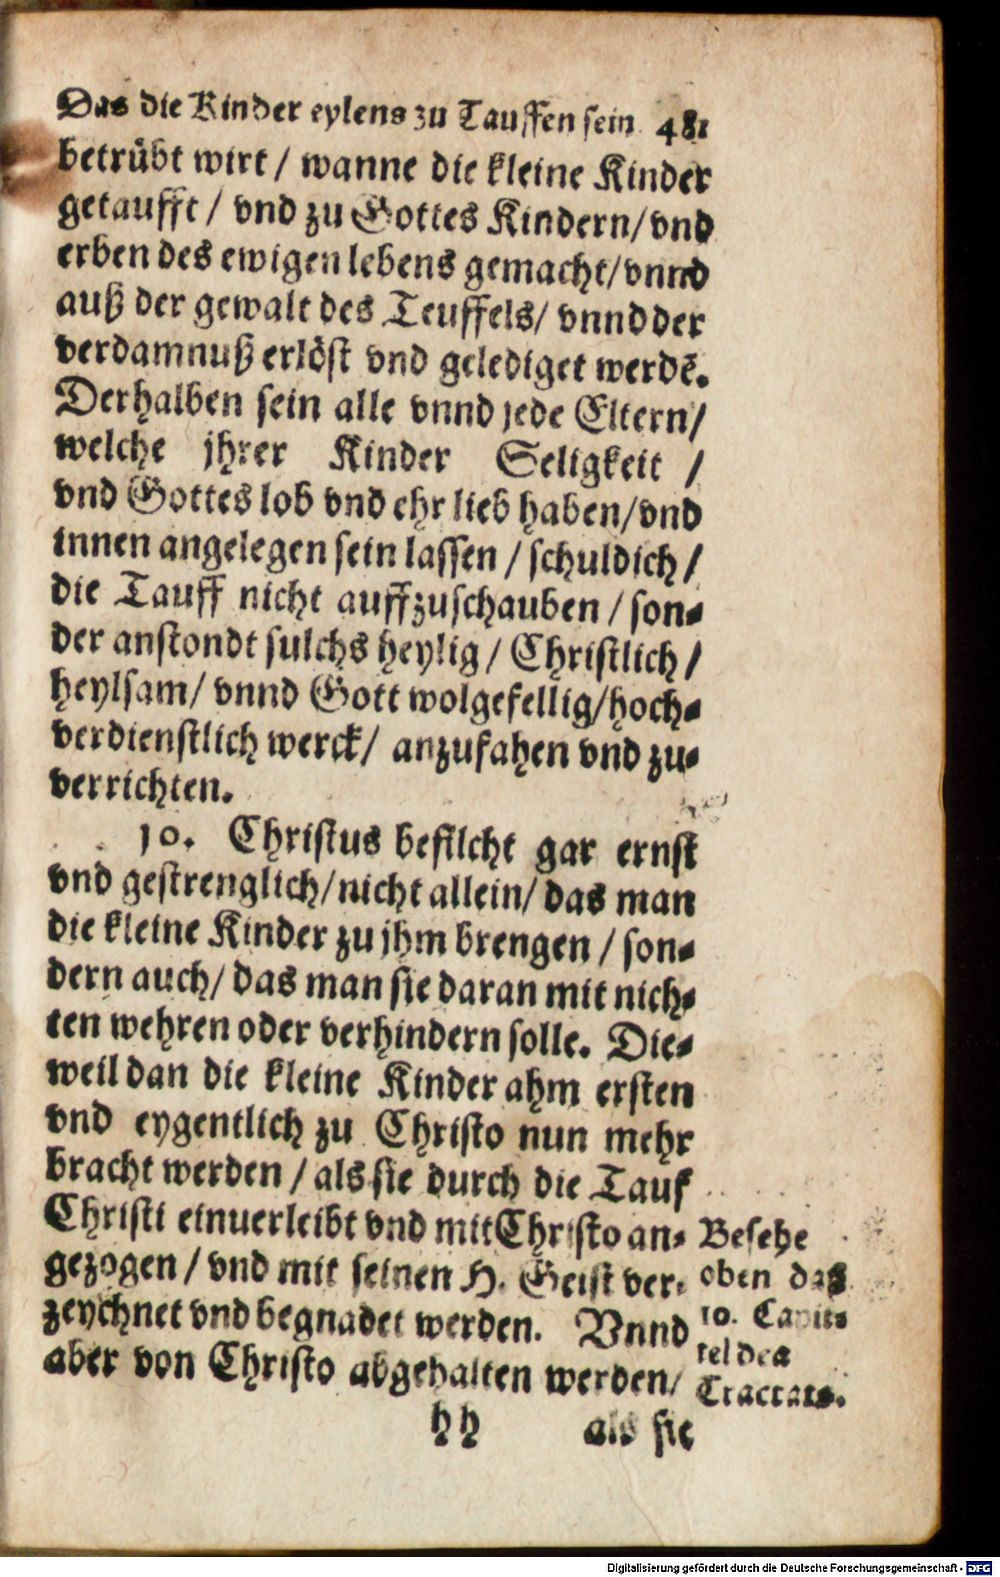 Das die Kinder eylens zu Tauffen sein 481
betrübt wirt / wanne die kleine Kinder
getaufft / vnd zu Gottes Kindern/ vnd
erben des ewigen lebens gemacht/ vnnd
auß der gewalt des Teuffels/ vnnd der
verdamnuß erlöst vnd gelediget werdē.
Derhalben sein alle vnnd jede Eltern/
welche jhrer Kinder Seligkeit /
vnd Gottes lob vnd ehr lieb haben/ vnd
innen angelegen sein lassen / schuldich /
die Tauff nicht auffzuschauben / son-
der anstondt sulchs heylig / Christlich /
heylsam/ vnnd Gott wolgefellig/ hoch-
verdienstlich werck/ anzufahen vnd zu-
verrichten.
10. Christus befilcht gar ernst
vnd gestrenglich/ nicht allein/ das man
die kleine Kinder zu jhm brengen / son-
dern auch/ das man sie daran mit nich-
ten wehren oder verhindern solle. Die-
weil dan die kleine Kinder ahm ersten
vnd eygentlich zu Christo nun mehr
bracht werden / als sie durch die Tauf
Christi einuerleibt vnd mit Christo an-
gezogen / vnd mit seinen H. Geist ver-
zeychnet vnd begnadet werden. Vnnd
aber von Christo abgehalten werden/
Besehe
oben das
10. Capit-
tel des
Tractats.
hh als sie
Digitalisierung gefördert durch die Deutsche Forschungsgemeinschaft - DFG